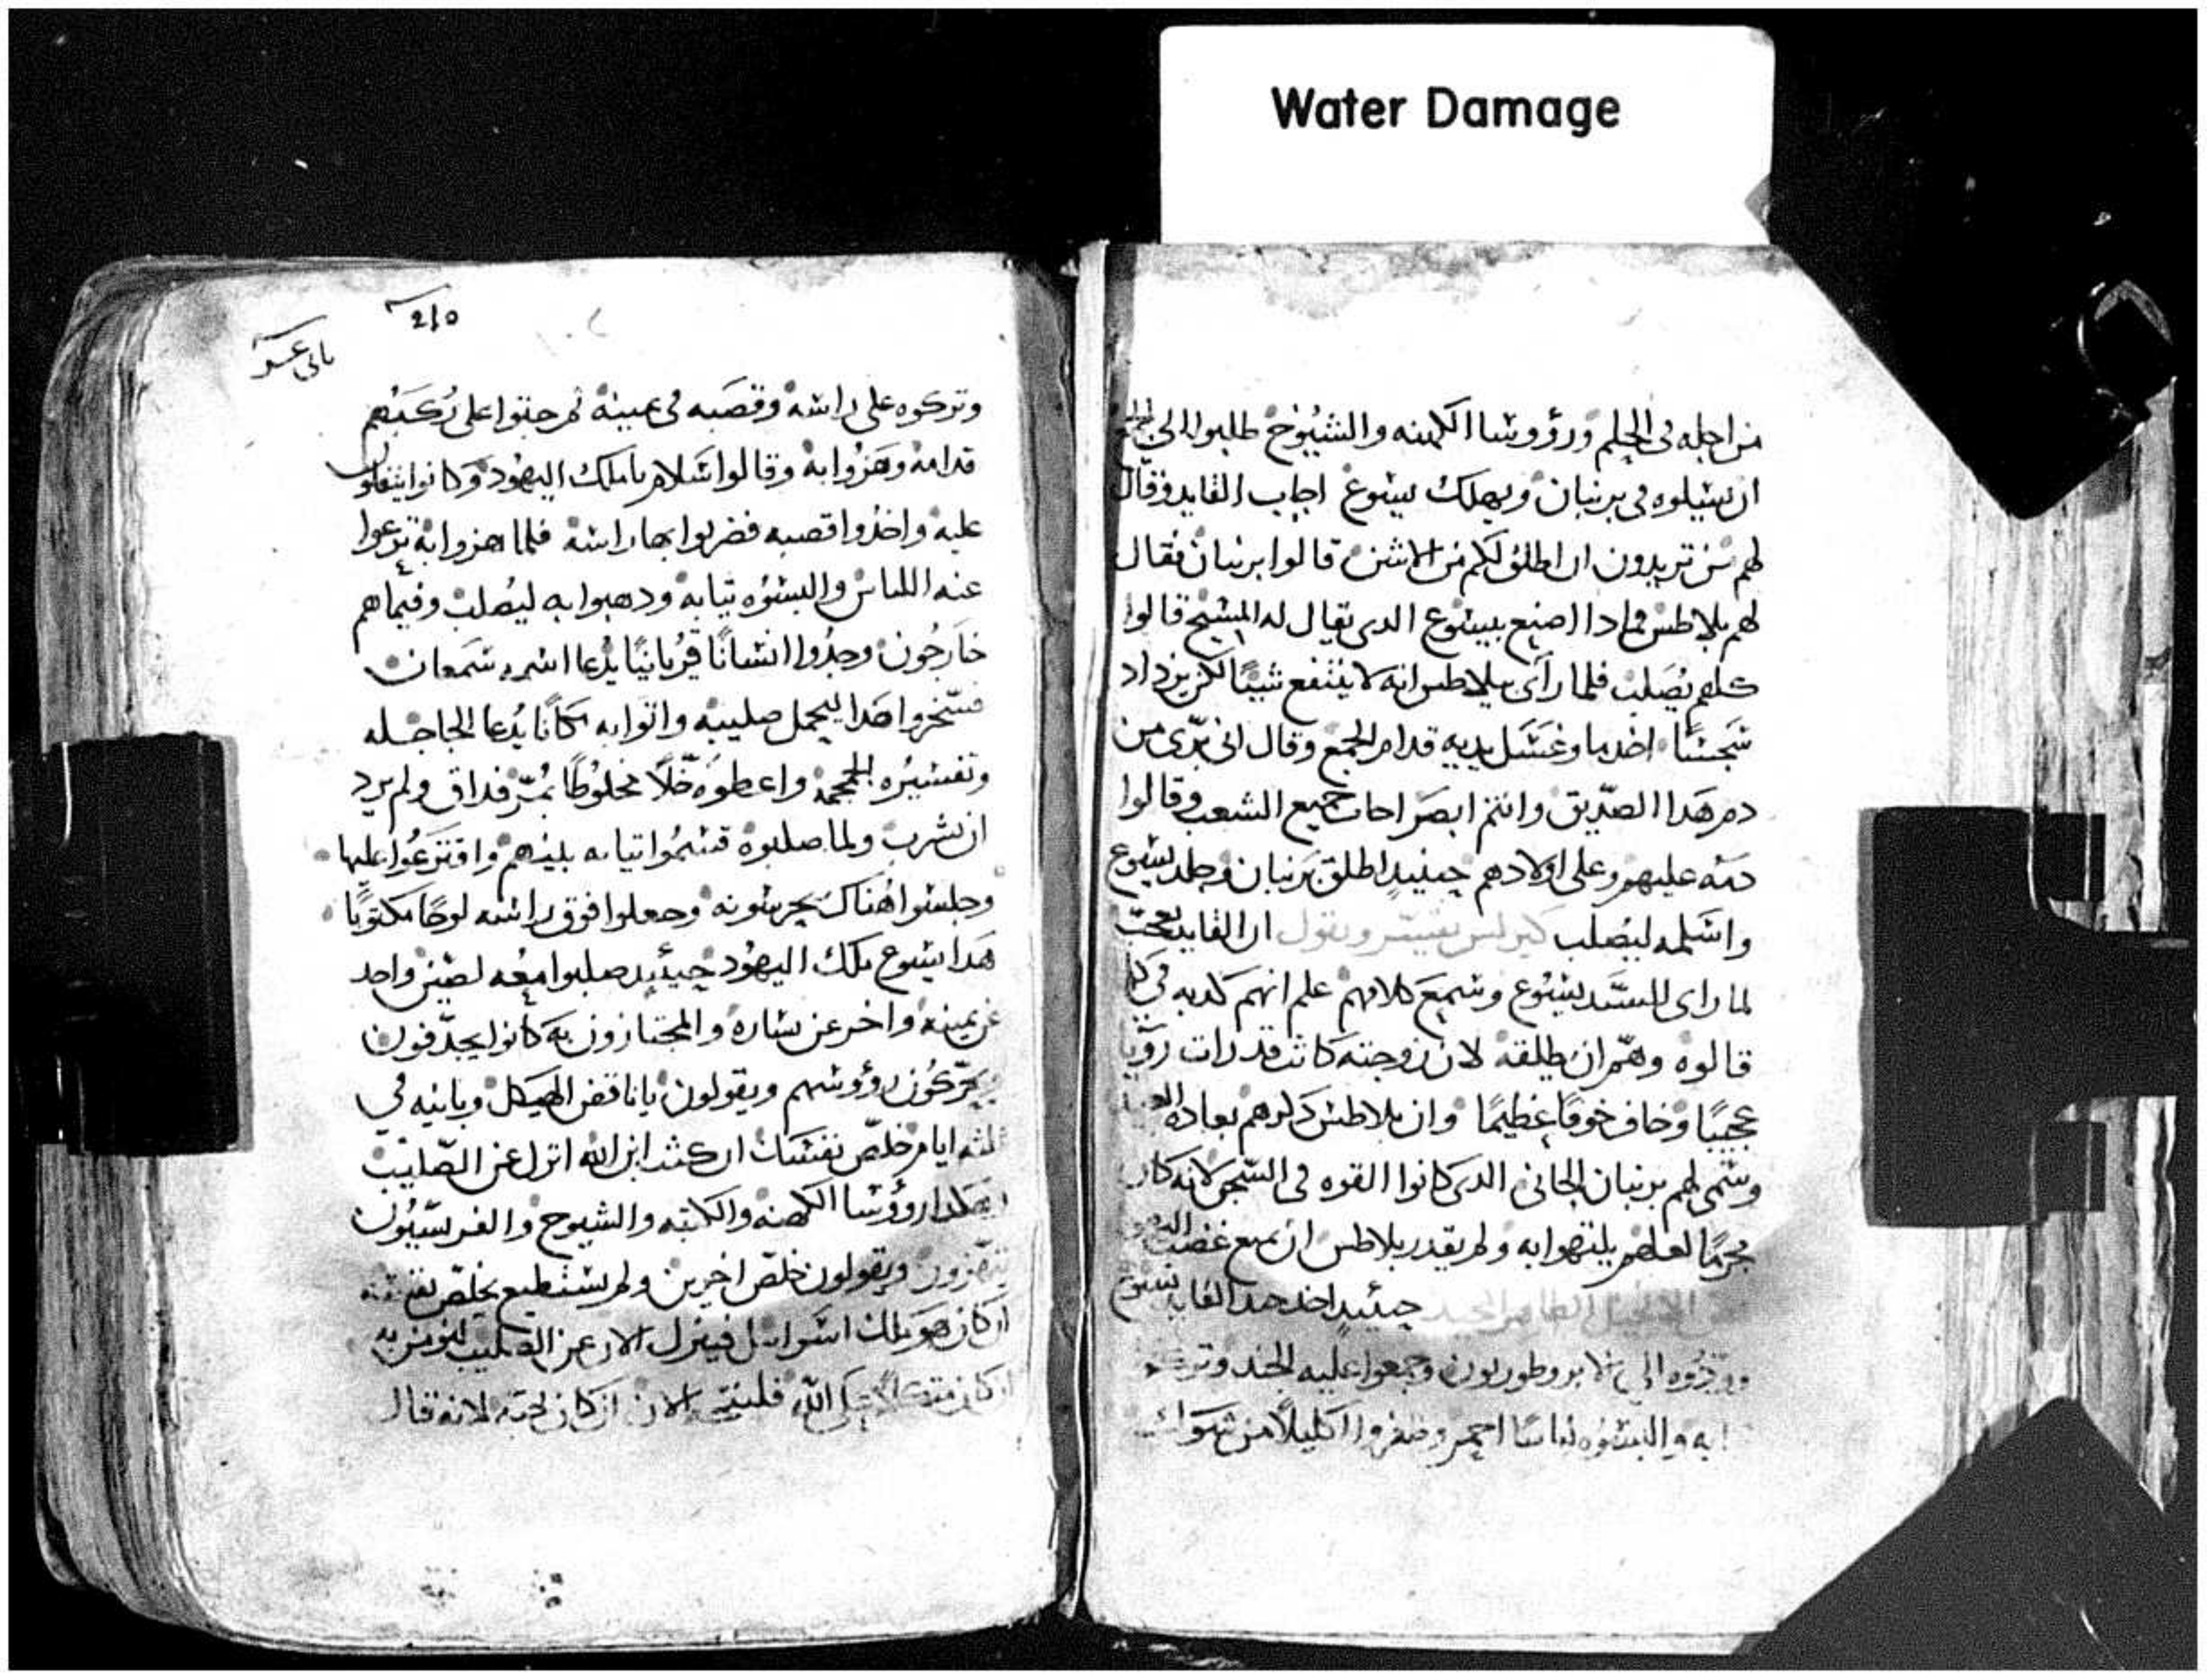 Water Damage
من اجله فى الحلم ورؤوسا الكهنه والشيوخ طلبوا الى الجمع
ان يسيلوه فى برنبان ويهلك يسوع اجاب القايد وقال
لهم من تريدون ان اطلق لكم من الاثنين قالوا برنبان فقال
لهم بلاطس فمادا اصنع بيسوع الدى يقال له المسيح قالوا
كلهم يصلب فلما رآى بيلاطس انه لا ينتفع شيئا لكن يزداد
سجسًا اخد ما وغسل يديه قدام الجمع وقال انى برّى من
دم هدا الصدّيق وانتم ابصر اجاب جميع الشعب وقالوا
دمه عليهم وعلى اولادهم حينيدٍ اطلق برنبان وجلد يسوع
واسلمه ليصلب كيرلس يفسّر ويقول ان القايد
لما راى للسيّد يسوع وسمع كلامهم علم انهم كدبه فى
قالوه وهمّ ان يطلقه لان زوجته كانت قد رات رؤيا
عجيبًا وخاف خوفًا عظيمًا وان بلاطس دكرهم بعاده
وسمى لهم برنبان الجانى الدى كانوا القوه فى السّجن لانه كان
مجرمًا لعلهم يلتهوا به ولم يقدر بلاطس ان يمنع غضب
الانجيل الطاهر المجيد حينيدٍ اخد جند القايد يسوع
الى الابروطوريون وجمعوا عليه الجند
والبسوه لباسًا احمر وضفروا اكليلًا من شوك
210
وتركوه على راسه وقصبه فى يمينه ثم جثوا على ركبهم
قدامه وهزوا به وقالوا سلام يا ملك اليهود وكانوا يتفلون
عليه واخدوا قصبه فضربوا بها راسه فلما هزوا به نزعوا
عنه اللباس والبسوه تيابه ودهبوا به ليُصلب وفيما هم
خارجون وجدوا انسانًا قريانيًا يدعا اسمه سمعان
فسخروا هدا ليحمل صليبه واتوا به مكانًا يدعا الجاجله
وتفسيره الجمجمه واعطوه خلًا مخلوطًا بمرّ فداق ولم يرد
ان يشرب ولما صلبوه قسموا تيابه بينهم واقترعوا عليها
وجلسوا هناك يحرسونه وجعلوا فوق راسه لوحًا مكتوبًا
هدا يسوع ملك اليهود حينيدٍ صلبوا معه لصين واحد
عن يمينه واخر عن يساره والمجتازون به كانوا يجدّفون
ويحرّكون رؤوسهم ويقولون يا ناقض الهيكل وبانيه فى
تلته ايام خلّص نفسك ان كنت ابن الله انزل عن الصليب
وهكدا رؤوسا الكهنه والكتبه والشيوخ والفريسيّون
ويقولون خلّص اخرين ولم يستطيع يخلّص نفسه
ان كان هو ملك اسراييل فينزل الان عن الصليب لنومن به
الله فلينجيه الان ان كان يحبّه لانه قال